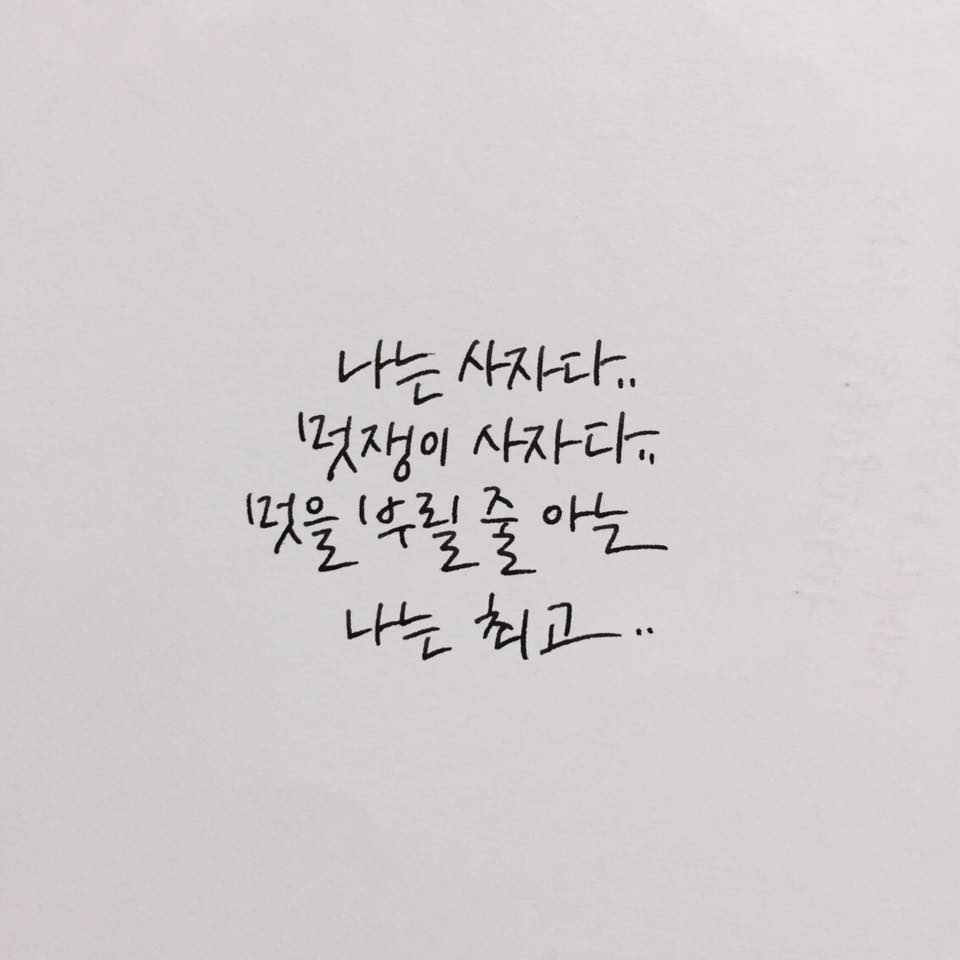 나는 사자다..
멋쟁이 사자다..
멋을 부릴 줄 아는
나는 최고..